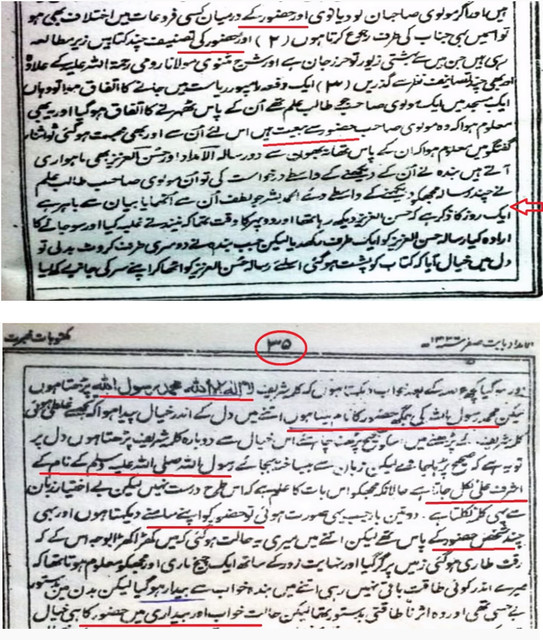 ہیں اور اگر مولوی صاحبان لودیانوی اور حضور کے درمیان کسی فروعات میں اختلاف بھی ہو
تو اسمیں بھی جناب کی طرف رجوع کرتا ہوں (۲) اور حضور کی تصنیف چند کتابیں زیر مطالعہ
رہی ہیں جن میں سے بہشتی زیور تو حرز جان ہے اور شرح مثنوی مولانا رومی رحمۃ اللہ علیہ کے علاوہ
اور بھی چند تصانیف نظر سے گذریں (۳) ایک دفعہ رامپور ریاست میں جانے کا اتفاق ہوا تو وہاں
ایک مسجد میں ایک مولوی صاحب جو طالب علم تھے اُن کے پاس ٹھہرنے کا اتفاق ہو گیا اور یہ بھی
معلوم ہوا کہ وہ مولوی صاحب حضور سے بیعت ہیں اس لئے اُن سے اور بھی محبت ہو گئی تو اثنائے
گفتگو میں معلوم ہوا کہ ان کے پاس تھانہ بھون سے دو رسالہ الامداد اور حسن العزیز بھی ماہواری
آتے ہیں بندہ نے اُن کے دیکھنے کے واسطے درخواست کی تو اُن مولوی صاحب طالب علم
نے چند رسالہ مجھکو دیکھنے کے واسطے دئے الحمد للہ جو لطف اُن سے اٹھایا بیان سے باہر ہے
ایک روز کا ذکر ہے کہ حسن العزیز دیکھ رہا تھا اور دوپہر کا وقت تھا کہ نیند نے غلبہ کیا اور سو جانے کا
ارادہ کیا رسالہ حسن العزیز کو ایک طرف رکھ دیا لیکن جب بندہ نے دوسری طرف کروٹ بدلی تو
دل میں خیال آیا کہ کتاب کو پشت ہو گئی اسلئے رسالہ حسن العزیز کو اٹھا کر اپنے سر کی جانب رکھ لیا
الامداد بابت صفر ۱۳۳۶ھ
۳۵
مکتوبات خبرت
اور سو گیا کچھ عرصہ کے بعد خواب دیکھتا ہوں کہ کلمہ شریف لا الہ الا اللہ محمد رسول اللہ پڑھتا ہوں
لیکن محمد رسول اللہ کی جگہ حضور کا نام لیتا ہوں اتنے میں دل کے اندر خیال پیدا ہوا کہ تجھ سے غلطی ہوئی
کلمہ شریف کے پڑھنے میں اسکو صحیح پڑھنا چاہئے اس خیال سے دوبارہ کلمہ شریف پڑھتا ہوں دل پر
تو یہ ہے کہ صحیح پڑھا جاوے لیکن زبان سے بیساختہ بجائے رسول اللہ صلی اللہ علیہ وسلم کے نام کے
اشرف علی نکل جاتا ہے حالانکہ مجھکو اس بات کا علم ہے کہ اس طرح درست نہیں لیکن بے اختیار زبان
سے یہی کلمہ نکلتا ہے۔ دو تین بار جب یہی صورت ہوئی تو حضور کو اپنے سامنے دیکھتا ہوں اور بھی
چند شخص حضور کے پاس تھے لیکن اتنے میں میری یہ حالت ہو گئی کہ میں کھڑا کھڑا بوجہ اس کے کہ
رقت طاری ہو گئی زمین پر گر گیا اور نہایت زور کے ساتھ ایک چیخ ماری اور مجھکو معلوم ہوتا تھا کہ
میرے اندر کوئی طاقت باقی نہیں رہی اتنے میں بندہ خواب سے بیدار ہو گیا لیکن بدن میں بدستور
بے حسی تھی اور وہ اثر ناطاقتی بدستور تھا لیکن حالت خواب اور بیداری میں حضور کا ہی خیال